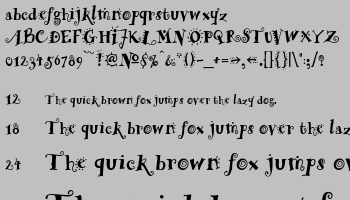 abcdefghijklmnopqrstuvwxyz
ABCDEFGHIJKLMNOPQRSTUVWXYZ
0123456789
12 The quick brown fox jumps over the lazy dog.
18 The quick brown fox jumps over the laz
24 The quick brown fox jumps